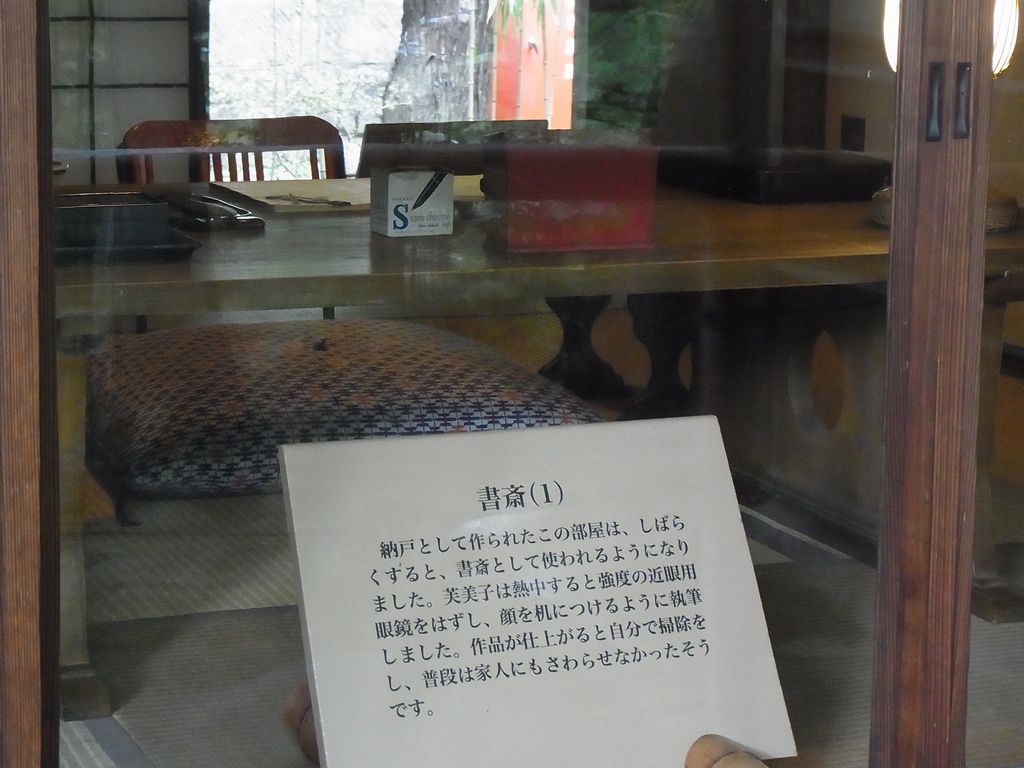 Super chrome
書斎(1)
納戸として作られたこの部屋は、しばら
くすると、書斎として使われるようになり
ました。芙美子は熱中すると強度の近眼用
眼鏡をはずし、顔を机につけるように執筆
しました。作品が仕上がると自分で掃除を
し、普段は家人にもさわらせなかったそう
です。